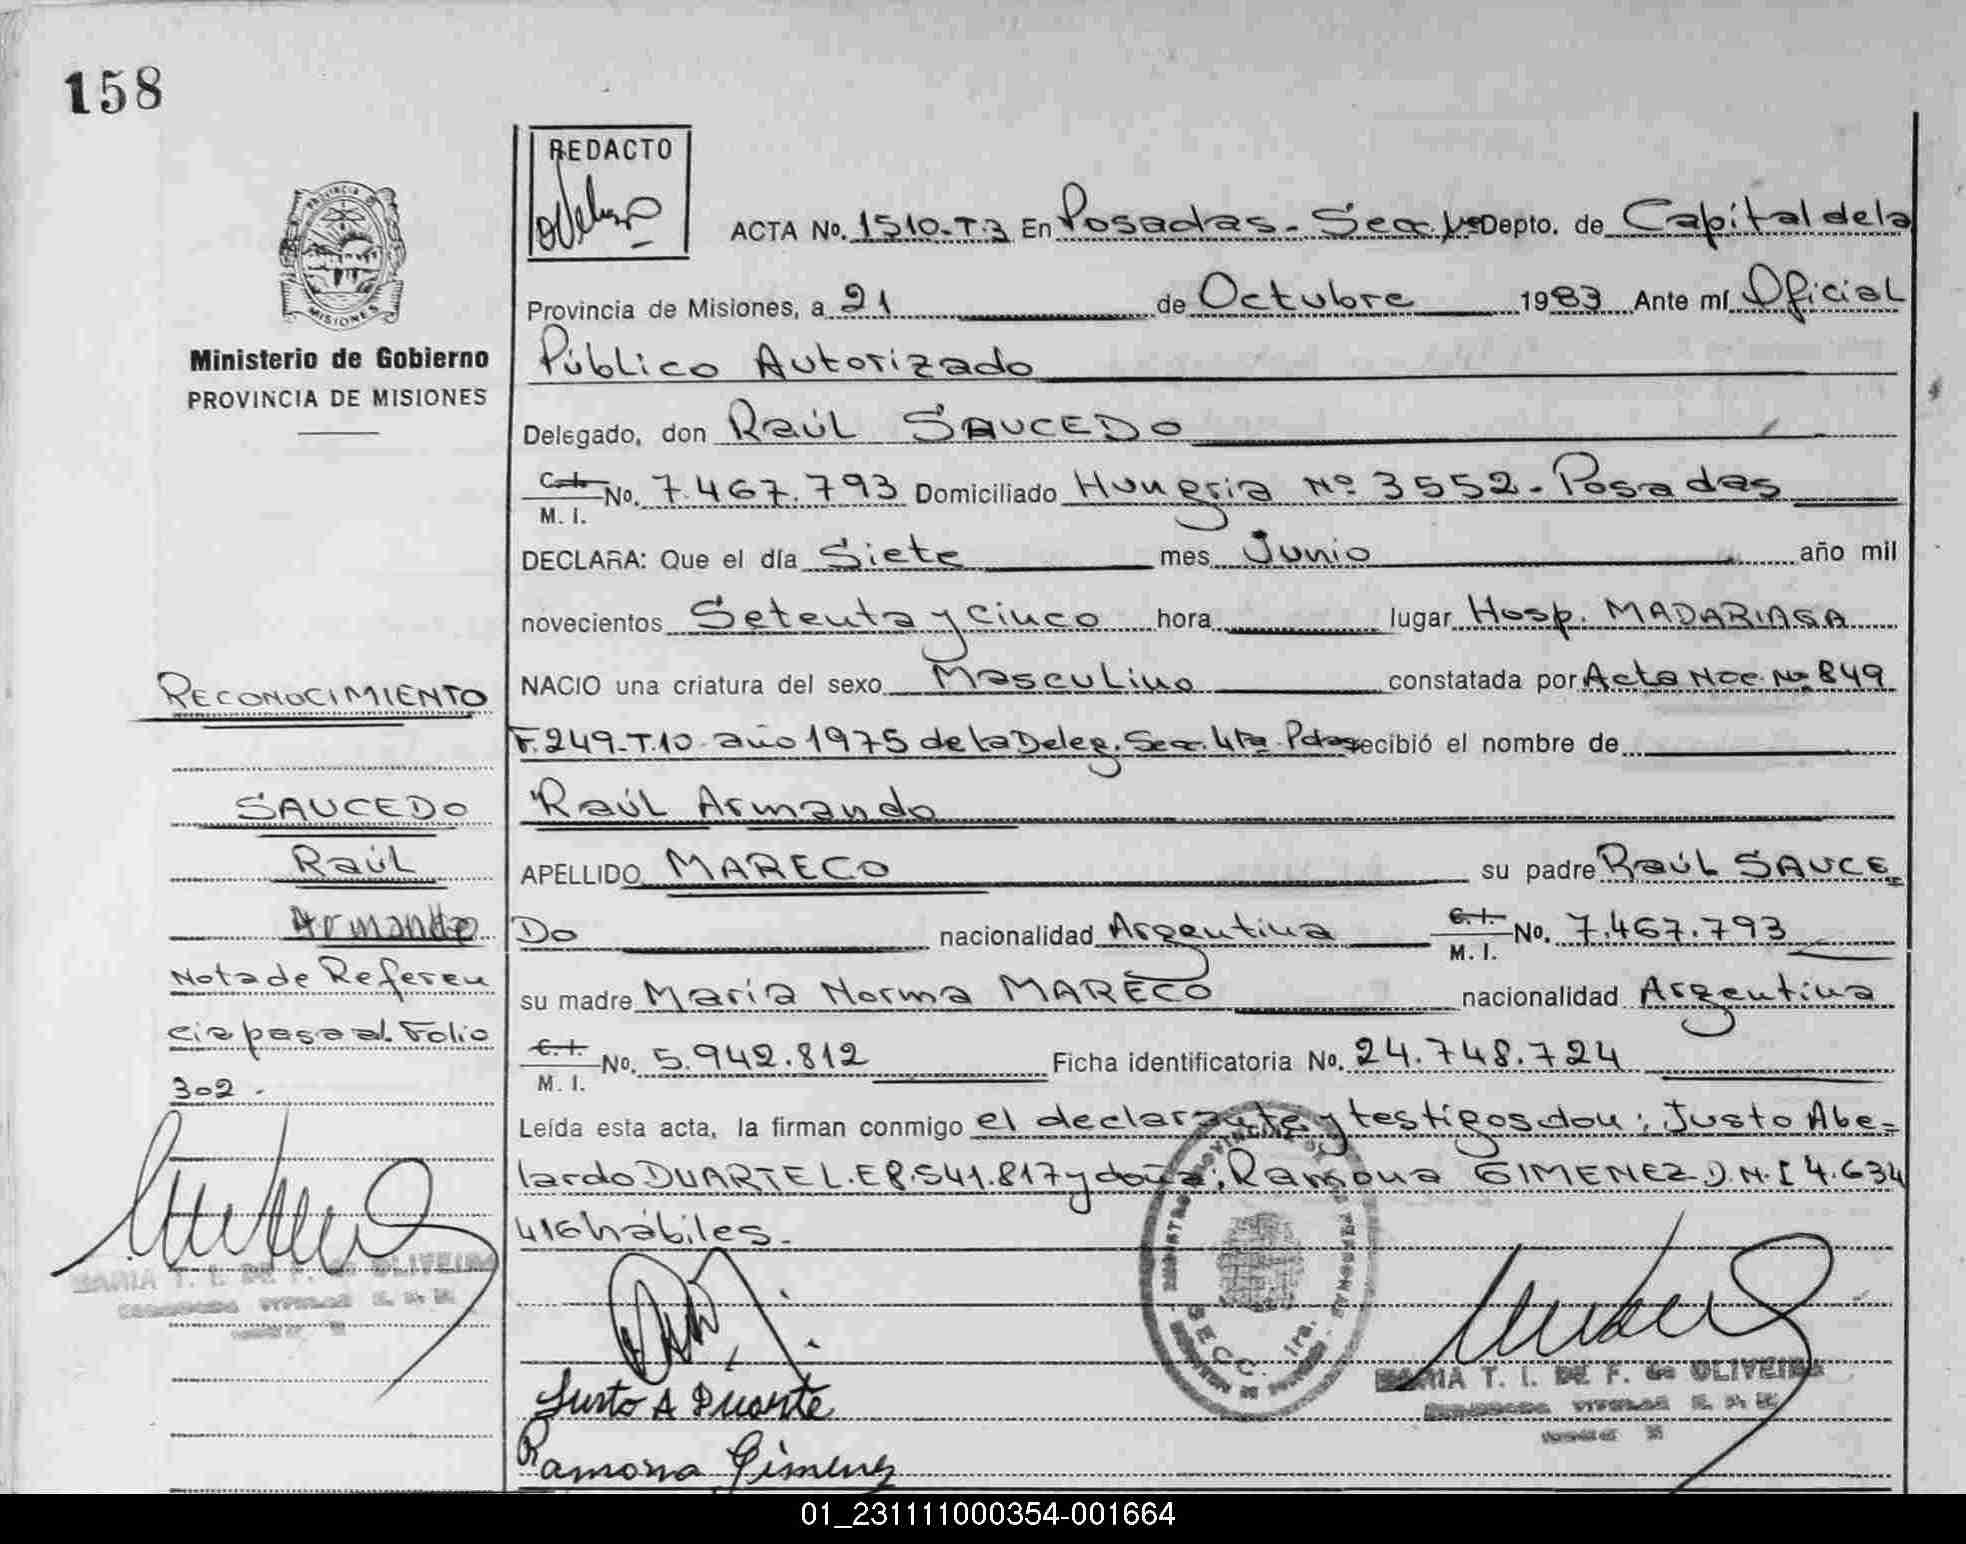 158
REDACTO
ACTA No. 1510-T.3 En Posadas - Secc. 1ra Depto. de Capital de la
Provincia de Misiones, a 21 de Octubre 1983 Ante mí Oficial
PROVINCIA
MISIONES
Ministerio de Gobierno
PROVINCIA DE MISIONES
Público Autorizado
Delegado, don Raúl SAUCEDO
C. I.
M. I. No. 7.467.793 Domiciliado Hungria Nº 3552 - Posadas
DECLARA: Que el día Siete mes Junio año mil
novecientos Setenta y Cinco hora lugar Hosp. MADARIAGA
NACIO una criatura del sexo Masculino constatada por Acta Nac. Nº 849
F. 249-T.10 año 1975 de la Deleg. Secc. 4ta Pdas recibió el nombre de
Raúl Armando
APELLIDO MARECO su padre Raúl SAUCE
DO nacionalidad Argentina C. I.
M. I. No. 7.467.793
su madre María Norma MARECO nacionalidad Argentina
C. I.
M. I. No. 5.942.812 Ficha identificatoria No. 24.748.724
Leída esta acta, la firman conmigo el declarante y testigos don: Justo Abe-
lardo DUARTE L.E 8.541.817 y doña: Ramona GIMENEZ D.N.I 4.634
416 hábiles.-
RECONOCIMIENTO
SAUCEDO
Raúl
Armando
Nota de Referen
cia pasa al Folio
302.
MARIA T. I. DE F. de OLIVEIRA
SECC. 1ra.
MARIA T. I. DE F. de OLIVEIRA
Justo A Duarte
Ramona Gimenez
01_231111000354-001664